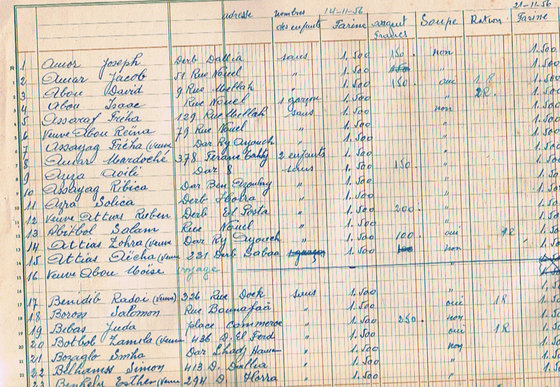 adresse nombres des enfants 14-11-56 Farine argent Francs Soupe Ration 21-11-56 Farine
1 Amor Joseph Derb Dallia sans 1.500 150 non 1.500
2 Amar Jacob 51 Rue Nauel " 1.500 " 1.500
3 Abou David 9 Rue Mellah " 1.500 150 oui 1R 1.500
4 Abou Isaac Rue Nauel 1 garçon 1.500 " 2R 1.500
5 Assaraf Freha 129 Rue Mellah sans 1.500 non 1.500
6 Veuve Abou Reïna 79 Rue Nauel " 1.500 " 1.500
7 Assayag Fréha (Veuve Dar Ry Ayouch " 1.500 " 1.500
8 Amar Mardoché 378 2 enfants 1.500 " 1.500
9 Aziza Dar 8 sans 1.500 150 " 1.500
10 Assayag Ribica Dar Ben " 1.500 " 1.500
11 Azra Solica Derb " 1.500 " 1.500
12 Veuve Attias Ruben Derb El Posta " 1.500 200 " 1.500
13 Abitbol Solam Rue Nauel " 1.500 " 1.500
14 Attias Zohra (Veuve Dar Ry Ayouch " 1.500 100 oui 1R 1.500
15 Attias Aïcha (Veuve 221 Derb Sabaa 1.500 non 1.500
16 Veuve Abou Moïse voyage
17 Bendib Radai (Veuve) 326 Rue Dock sans 1.500 " 1.500
18 Boross Salomon Rue " 1.500 oui 1R 1.500
19 Bebas Juda place Commerce " 1.500 250 non 1.500
20 Botbol Kamila (Veuve 426 D. El Ford " 1.500 oui 1R 1.500
21 Bozaglo Simha Dar " 1.500 non 1.500
22 Belhamess Simon 413 D. Dallia " 1.500 " 1.500
Esther (Veuve) 294 D. " 1.500